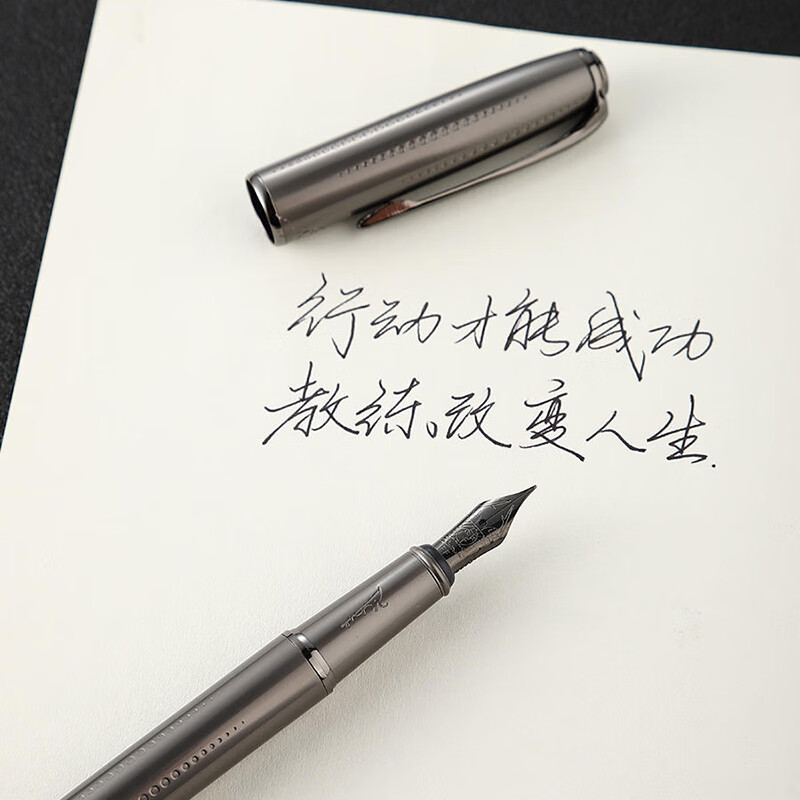 行动才能成功
教练。改变人生.